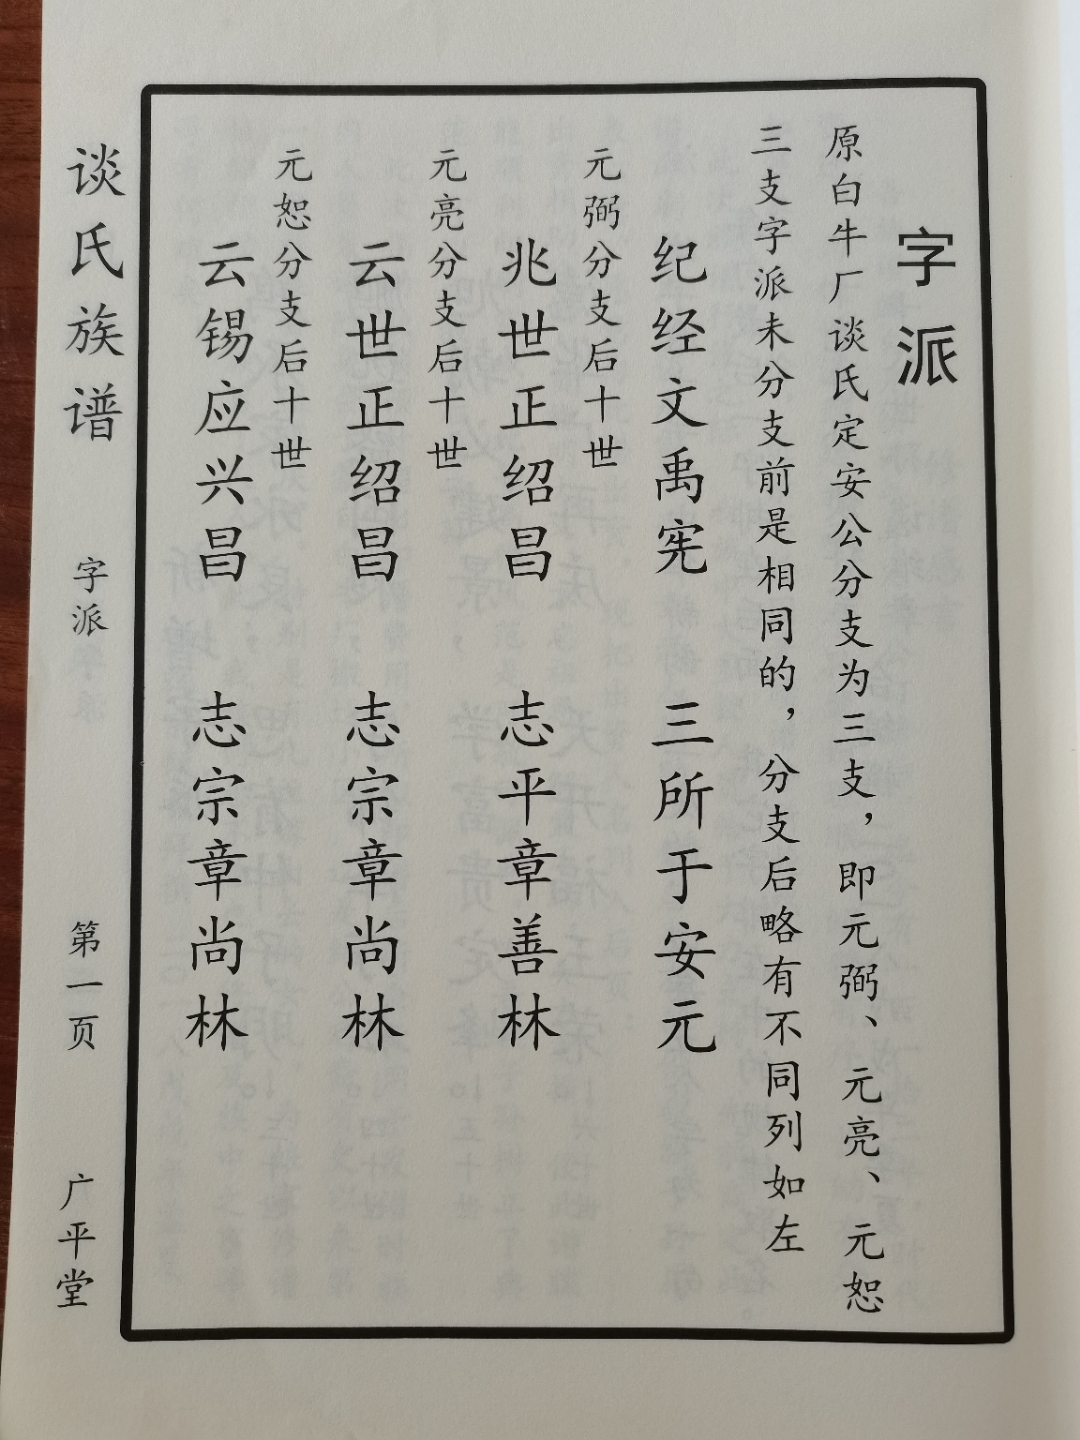 字派
原白牛厂谈氏定安公分支为三支，即元弼、元亮、元恕
三支字派未分支前是相同的，分支后略有不同列如左
纪经文禹宪 三所于安元
元弼分支后十世
兆世正绍昌 志平章善林
元亮分支后十世
云世正绍昌 志宗章尚林
元恕分支后十世
云锡应兴昌 志宗章尚林
谈氏族谱 字派 第一页 广平堂